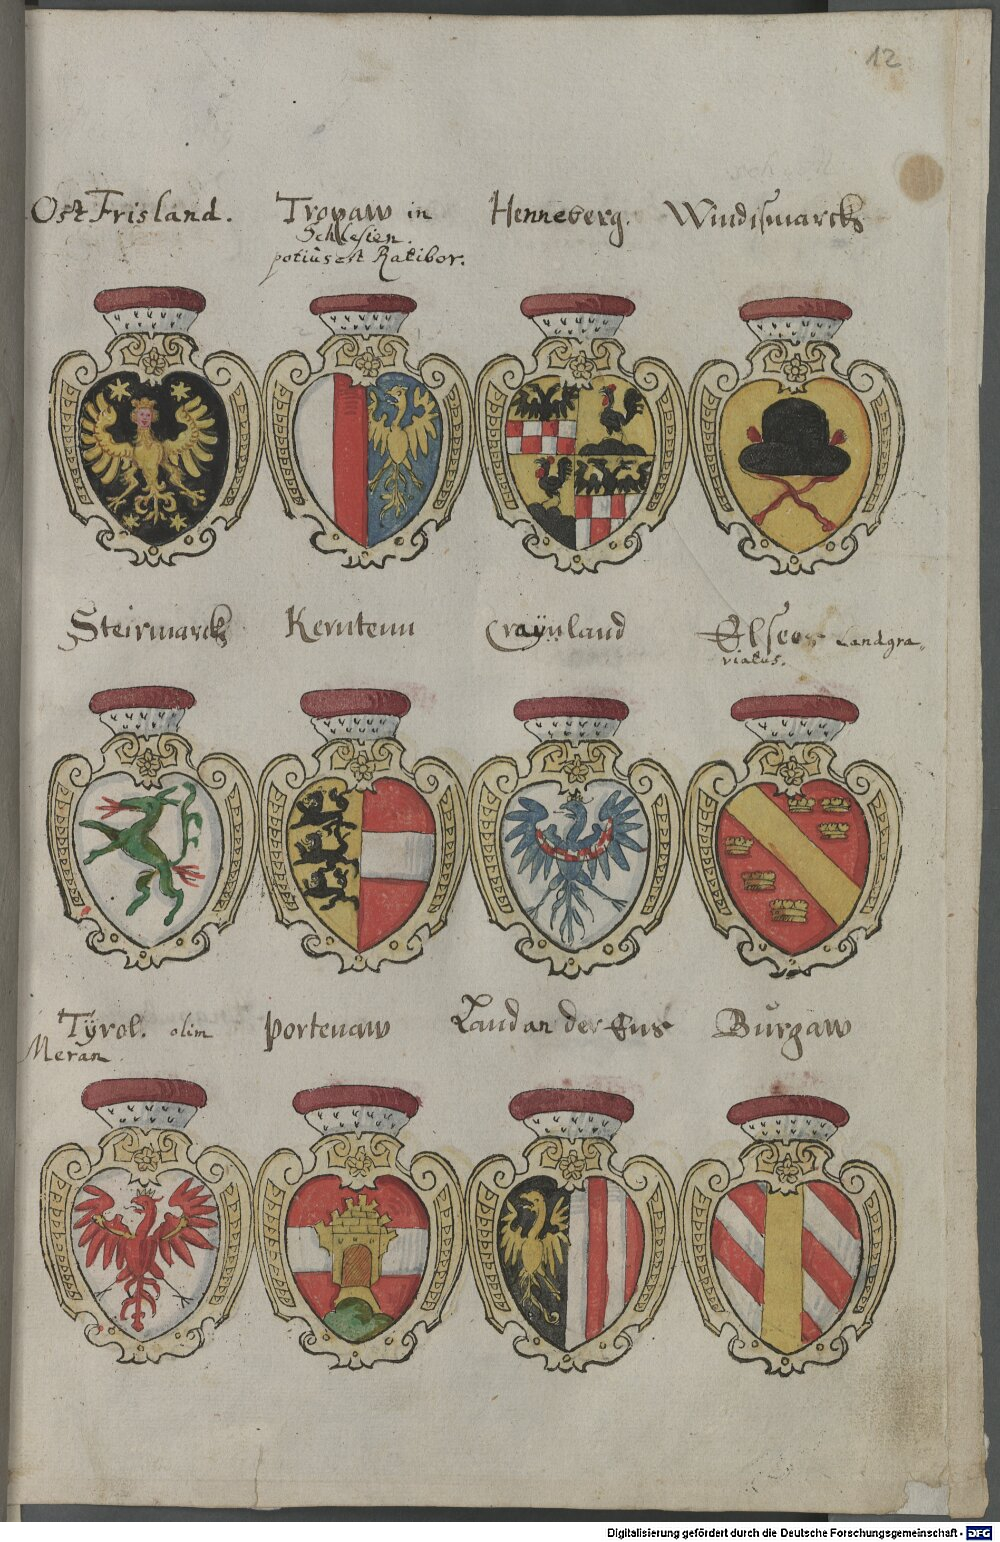 12
Ost Frisland.
Tropaw in
Schlesien.
potius est Ratibor.
Henneberg.
Windismarck
Steirmarck
Kerntenn
Craÿnland
Elses Landgra-
viatus.
Tÿrol. olim
Meran.
Portenaw
Land an der Ens
Burgaw
Digitalisierung gefördert durch die Deutsche Forschungsgemeinschaft - DFG